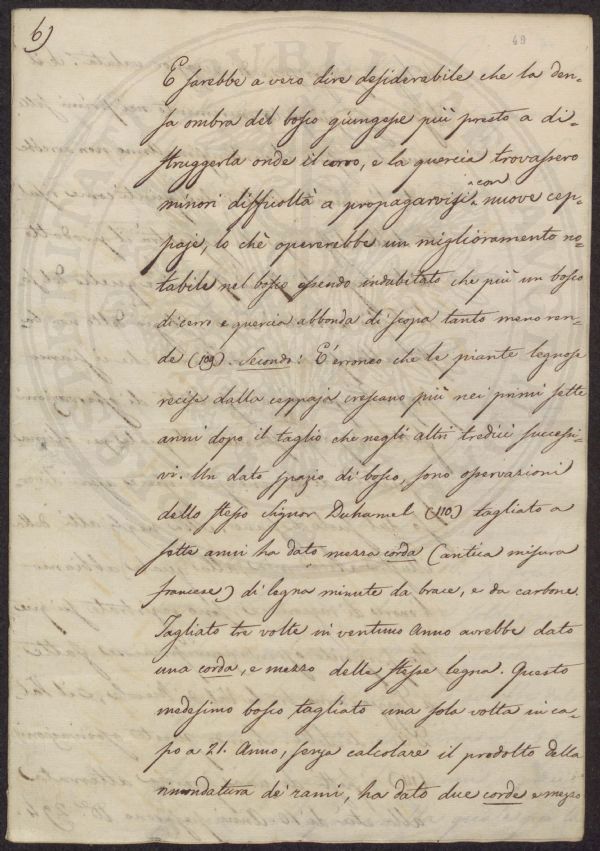 6)
49
E sarebbe a vero dire desiderabile che la den-
sa ombra del bosco giungesse più presto a di-
struggerla onde il cerro, e la quercia trovassero
minori difficoltà a propagarvisi con nuove cep-
paje, lo chè opererebbe un miglioramento no-
tabile nel bosco essendo indubitato che più un bosco
di cerro e quercia abbonda di scopa tanto meno ren-
de (109). Secondo: È erroneo che le piante legnose
recise dalla ceppaja crescano più nei primi sette
anni dopo il taglio che negli altri tredici successi-
vi. Un dato spazio di bosco, sono osservazioni
dello stesso Signor Duhamel (110.) tagliato a
sette anni ha dato mezza corda (antica misura
francese) di legna minute da brace, e da carbone.
Tagliato tre volte in ventuno Anno avrebbe dato
una corda, e mezzo delle stesse legna. Questo
medesimo bosco tagliato una sola volta in ca-
po a 21. Anno, senza calcolare il prodotto della
rimondatura de' rami, ha dato due corde e mezzo